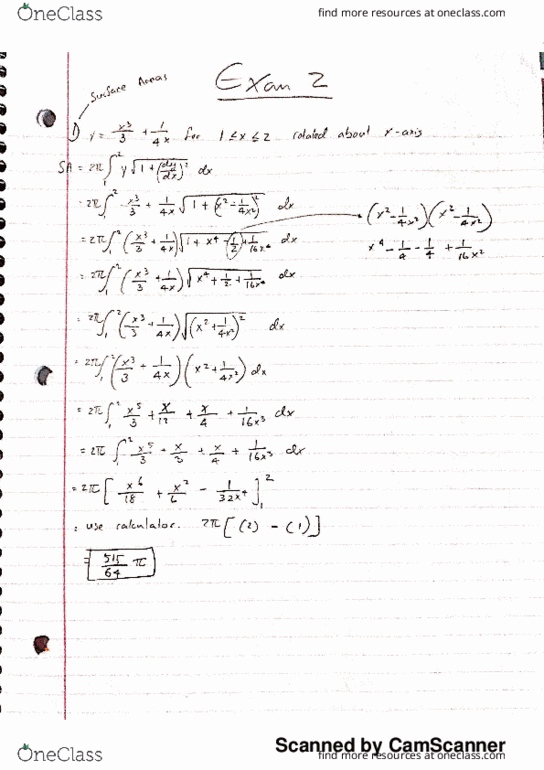 OneClass
find more resources at oneclass.com
Surface Areas
Exam 2
1) y = x³/3 + 1/4x for 1 ≤ x ≤ 2 rotated about x-axis
SA = 2π∫₁² y√(1 + (dy/dx)²) dx
= 2π∫₁² x³/3 + 1/4x √(1 + (x² - 1/4x²)²) dx
(x² - 1/4x²)(x² - 1/4x²)
= 2π∫₁² (x³/3 + 1/4x)√(1 + x⁴ - 1/2 + 1/16x⁴) dx
x⁴ - 1/4 - 1/4 + 1/16x²
= 2π∫₁² (x³/3 + 1/4x)√(x⁴ + 1/2 + 1/16x⁴) dx
= 2π∫₁² (x³/3 + 1/4x)√((x² + 1/4x²)²) dx
= 2π∫₁² (x³/3 + 1/4x)(x² + 1/4x²) dx
= 2π∫₁² x⁵/3 + x/12 + x/4 + 1/16x³ dx
= 2π∫₁² x⁵/3 + x/3 + x/4 + 1/16x³ dx
= 2π[x⁶/18 + x²/6 - 1/32x⁴]₁²
: use calculator. 2π[(2) - (1)]
= 515/64 π
Scanned by CamScanner
OneClass
find more resources at oneclass.com